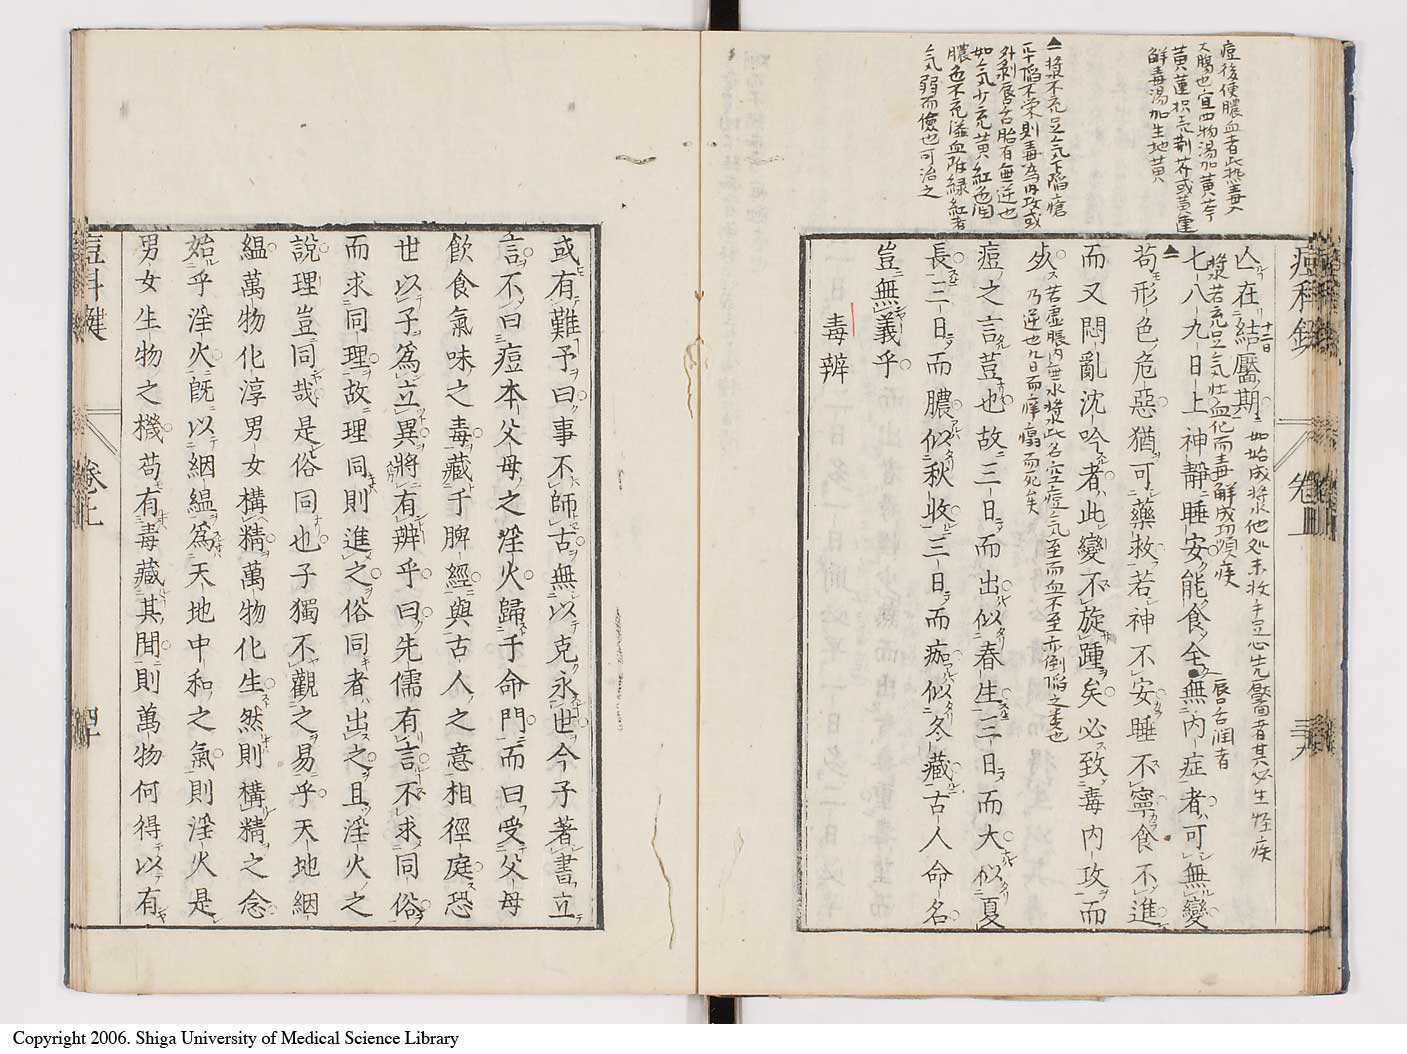 痘後便膿血者此熱毒入
大腸也宜四物湯加黄芩
黄蓮枳壳荆芥或黄連
鮮毒湯加生地黄
▲漿不充足气下陥瘡
正中陥不栄則毒為内攻或
外剥唇舌胎有無逆也
如气少充黄紅色润
膿色不充溢血附緑紅者
气弱而儉也可治之
痘科鍵
卷上
三十九
亾在結靨期
十一二日
如始成漿他処未收手足心先靨者其必生怪疾
漿若充足气壮血化而毒解成功順疾
七八九日上神靜睡安能食全無内症者可無變
唇舌润者
▲苟形色危惡猶可藥救若神不安睡不寧食不進
而又悶亂沈吟者此變不旋踵矣必致毒内攻而
歿
若虚脹内無水漿此名空痘气至而血不至亦倒陥之類也
乃逆也九日而痒癟而死矣
痘之言荳也故三日而出似春生三日而大似夏
長三日而膿似秋收三日而痂似冬藏古人命名
豈無義乎
毒辨
或有難予曰事不師古無以克永世今子著書立
言不曰痘本父母之淫火歸于命門而曰受父母
飮食氣味之毒藏于脾經與古人之意相徑庭恐
世以子爲立異將有辨乎曰先儒有言不求同俗
而求同理故理同則進之俗同者出之且淫火之
說理豈同哉是俗同也子獨不觀之易乎天地絪
縕萬物化淳男女構精萬物化生然則構精之念
始乎淫火旣以絪縕爲天地中和之氣則淫火是
男女生物之機苟有毒藏其間則萬物何得以有
痘科鍵
卷上
四十
Copyright 2006. Shiga University of Medical Science Library